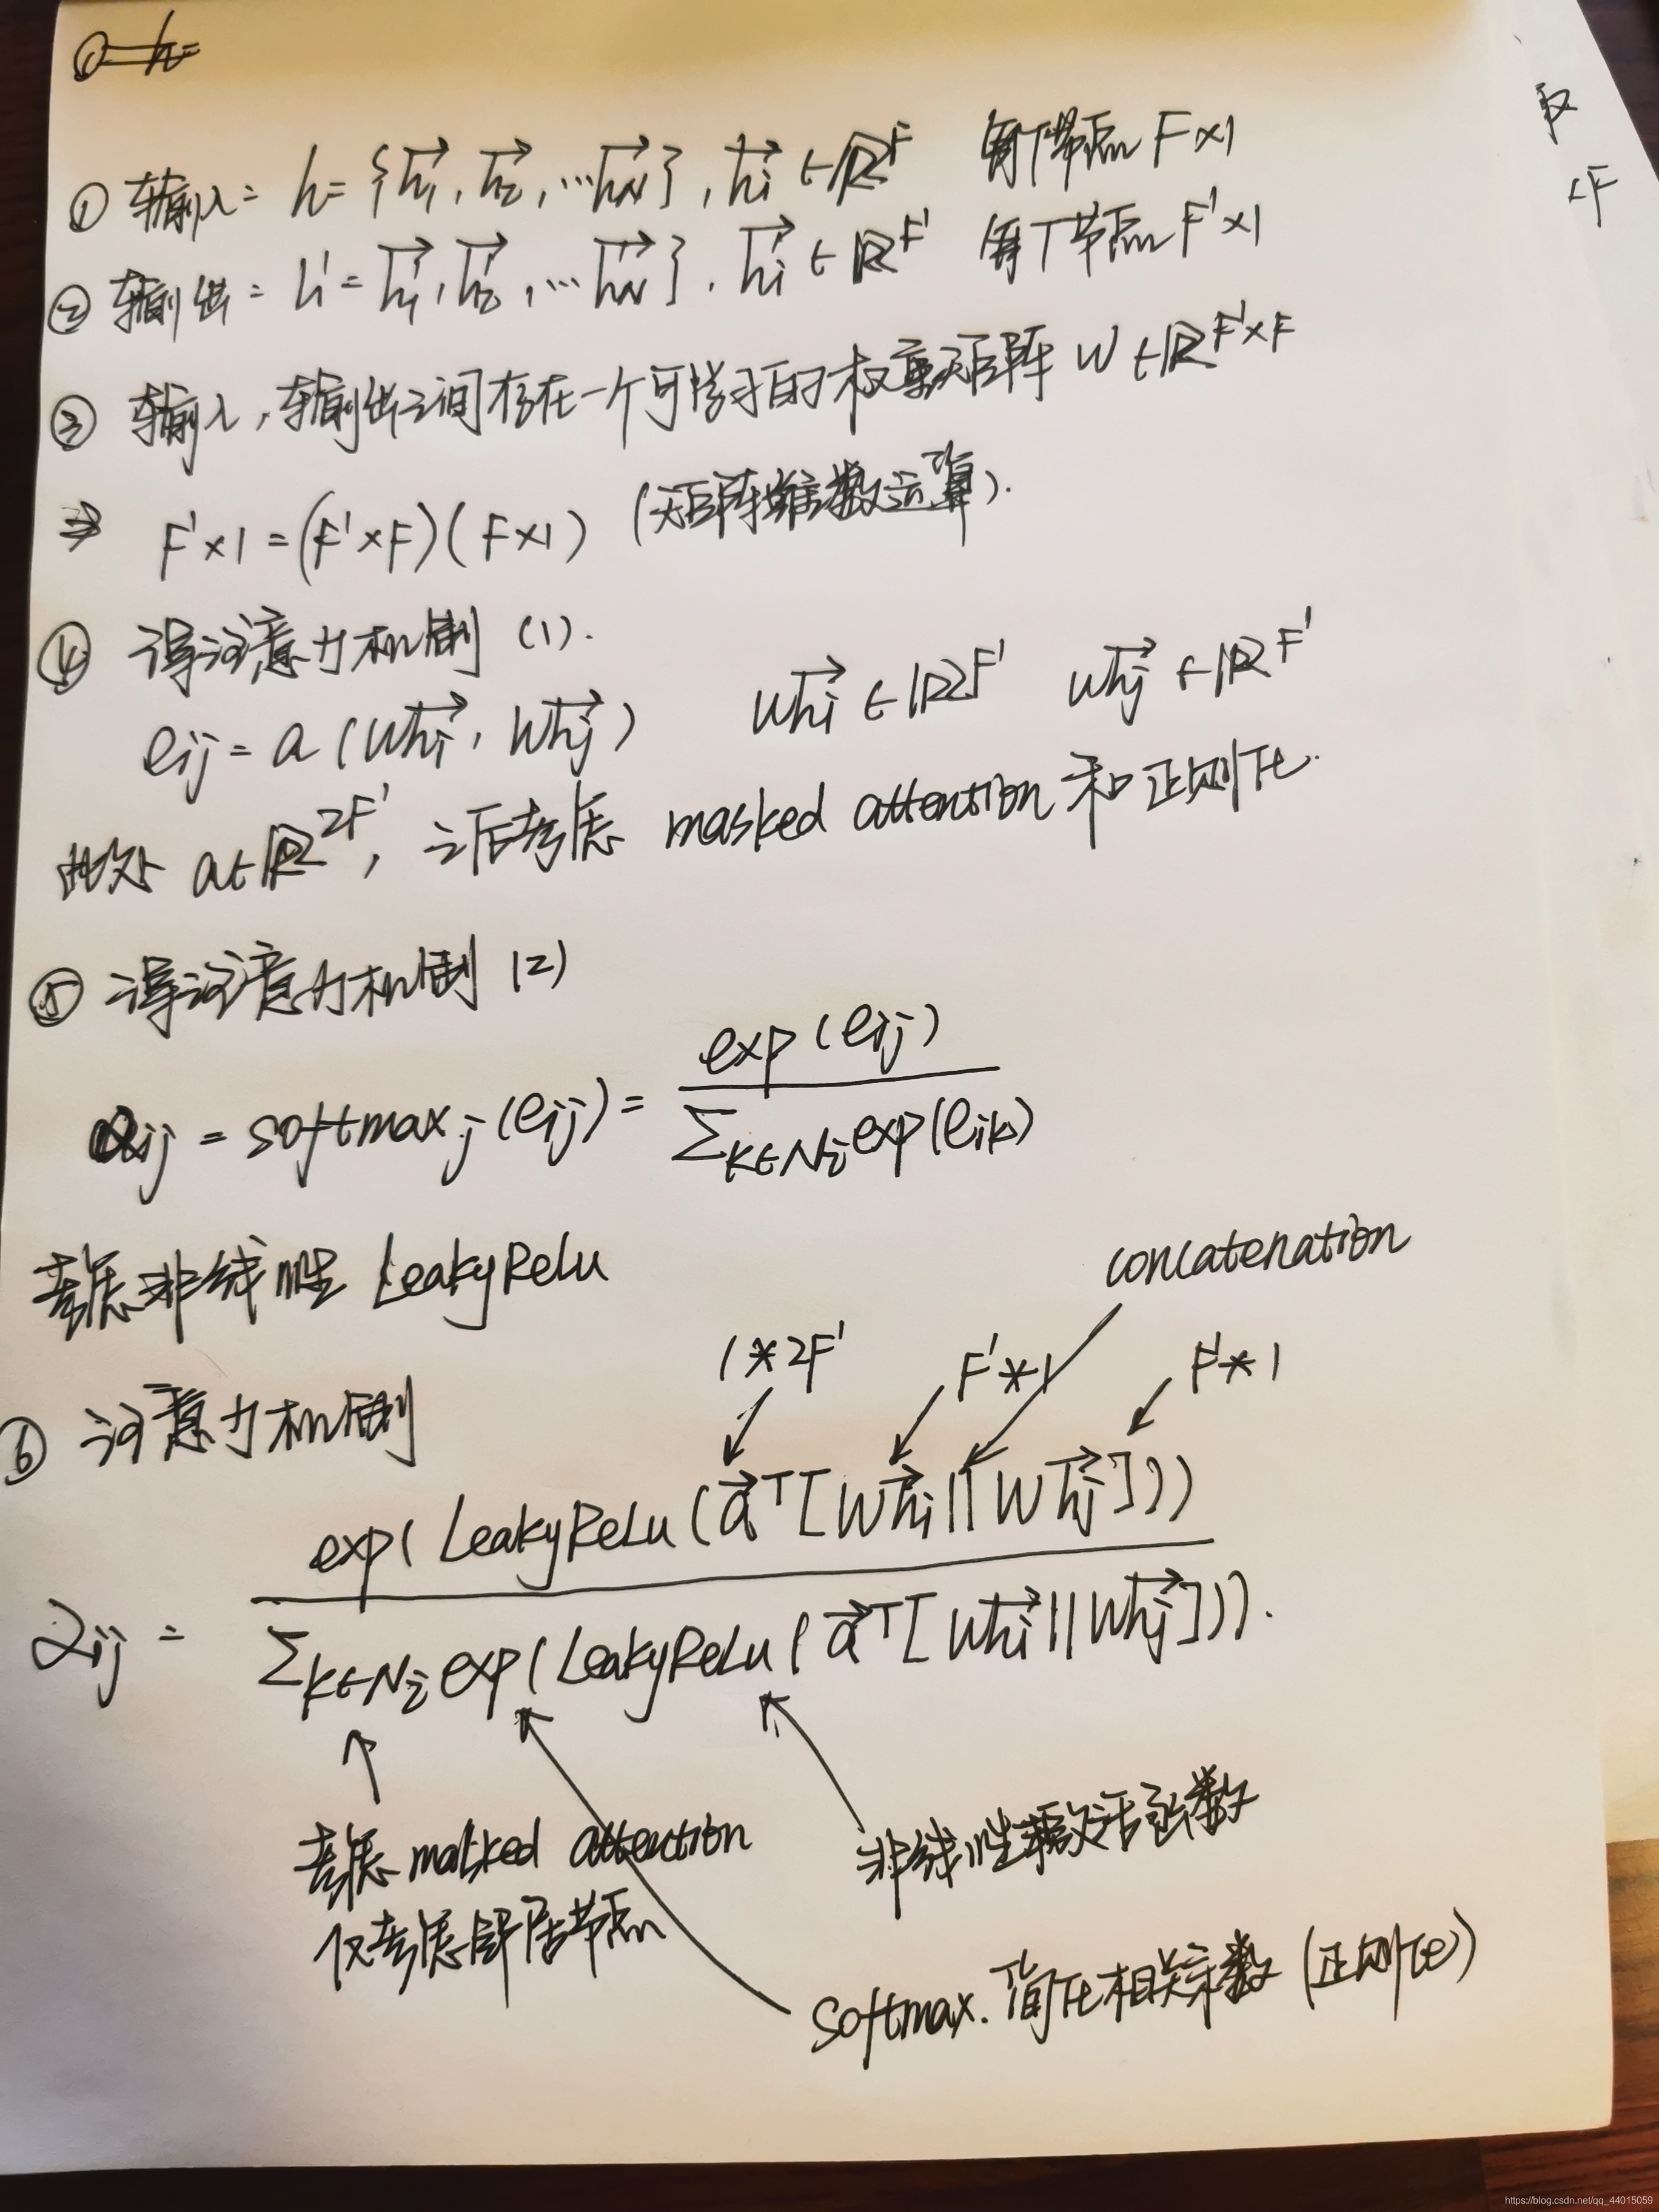 ① h=
① 输入: h={h₁, h₂, …hN}, hi∈ℝ^F 每个节点 F×1
② 输出: h'={h₁', h₂', …hN'}, hi'∈ℝ^F' 每个节点 F'×1
③ 输入,输出之间存在一个可学习的权重矩阵 W∈ℝ^F'×F
⇒ F'×1=(F'×F)(F×1) (矩阵维数运算).
④ 得注意力机制 (1).
eij=a(Whi, Whj) Whi∈ℝ^F' Whj∈ℝ^F'
此处 a∈ℝ^2F', 之后考虑 masked attention 和正则化.
⑤ 得注意力机制 (2)
αij = softmaxj(eij) = exp(eij) / Σk∈Ni exp(eik)
考虑非线性 LeakyRelu
concatenation
1*2F' F'*1 F'*1
⑥ 注意力机制
αij = exp(LeakyReLu(a^T[Whi||Whj])) / Σk∈Ni exp(LeakyReLu(a^T[Whi||Whj])).
考虑 masked attention
仅考虑邻居节点
非线性激活函数
softmax. 简化相关系数 (正则化)
https://blog.csdn.net/qq_44015059